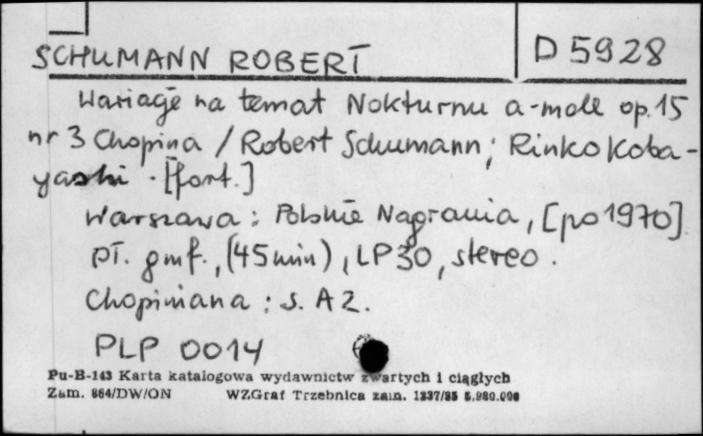 SCHUMANN ROBERT D 5928
Wariacje na temat Nokturnu a-moll op. 15
nr 3 Chopina / Robert Schumann ; Rinko Koba-
yashi . [fort.]
Warszawa : Polskie Nagrania, [po 1970]
Pł. gmf., (45 min), LP 30, stereo .
Chopiniana : s. A 2.
PLP 0014
Pu-B-143 Karta katalogowa wydawnictw zwartych i ciągłych
Zam. 864/DW/ON WZGraf Trzebnica zam. 1337/85 5.980.000